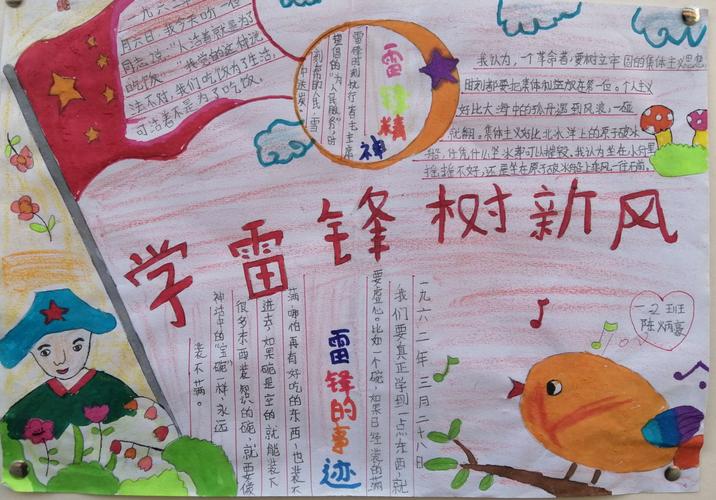 一九六二年
月六日,我今天听一位
同志说:“人活着就是为了
吃饭”……我觉的这种说
法不对,我们吃饭为了生活,
可活着不是为了吃饭。
雷锋精神
雷锋时刻执行着毛主席
望提的“为人民服务”时
刻帮助人民,雪
中送炭。
我认为,一个革命者,要树立牢固的集体主义思想
时刻都要把集体利益放在第一位。个人主义
好比大海中的孤舟遇到风浪,一碰
就翻。集体主义好比北冰洋上的原子破冰
船,什么
坐在原子破冰船上乘风一往直前。
学雷锋树新风
一二班
陈炳豪
雷锋的事迹
一九六二年三月二十八日
我们要真正学到一点东西,就
要虚心。比如一个碗,如果已经装的满
满,哪怕再有好吃的东西,也装不
进去,如果碗是空的,就能装下
很多东西。装知识的碗,就要像
神话中的“宝碗”一样,永远
装不满。